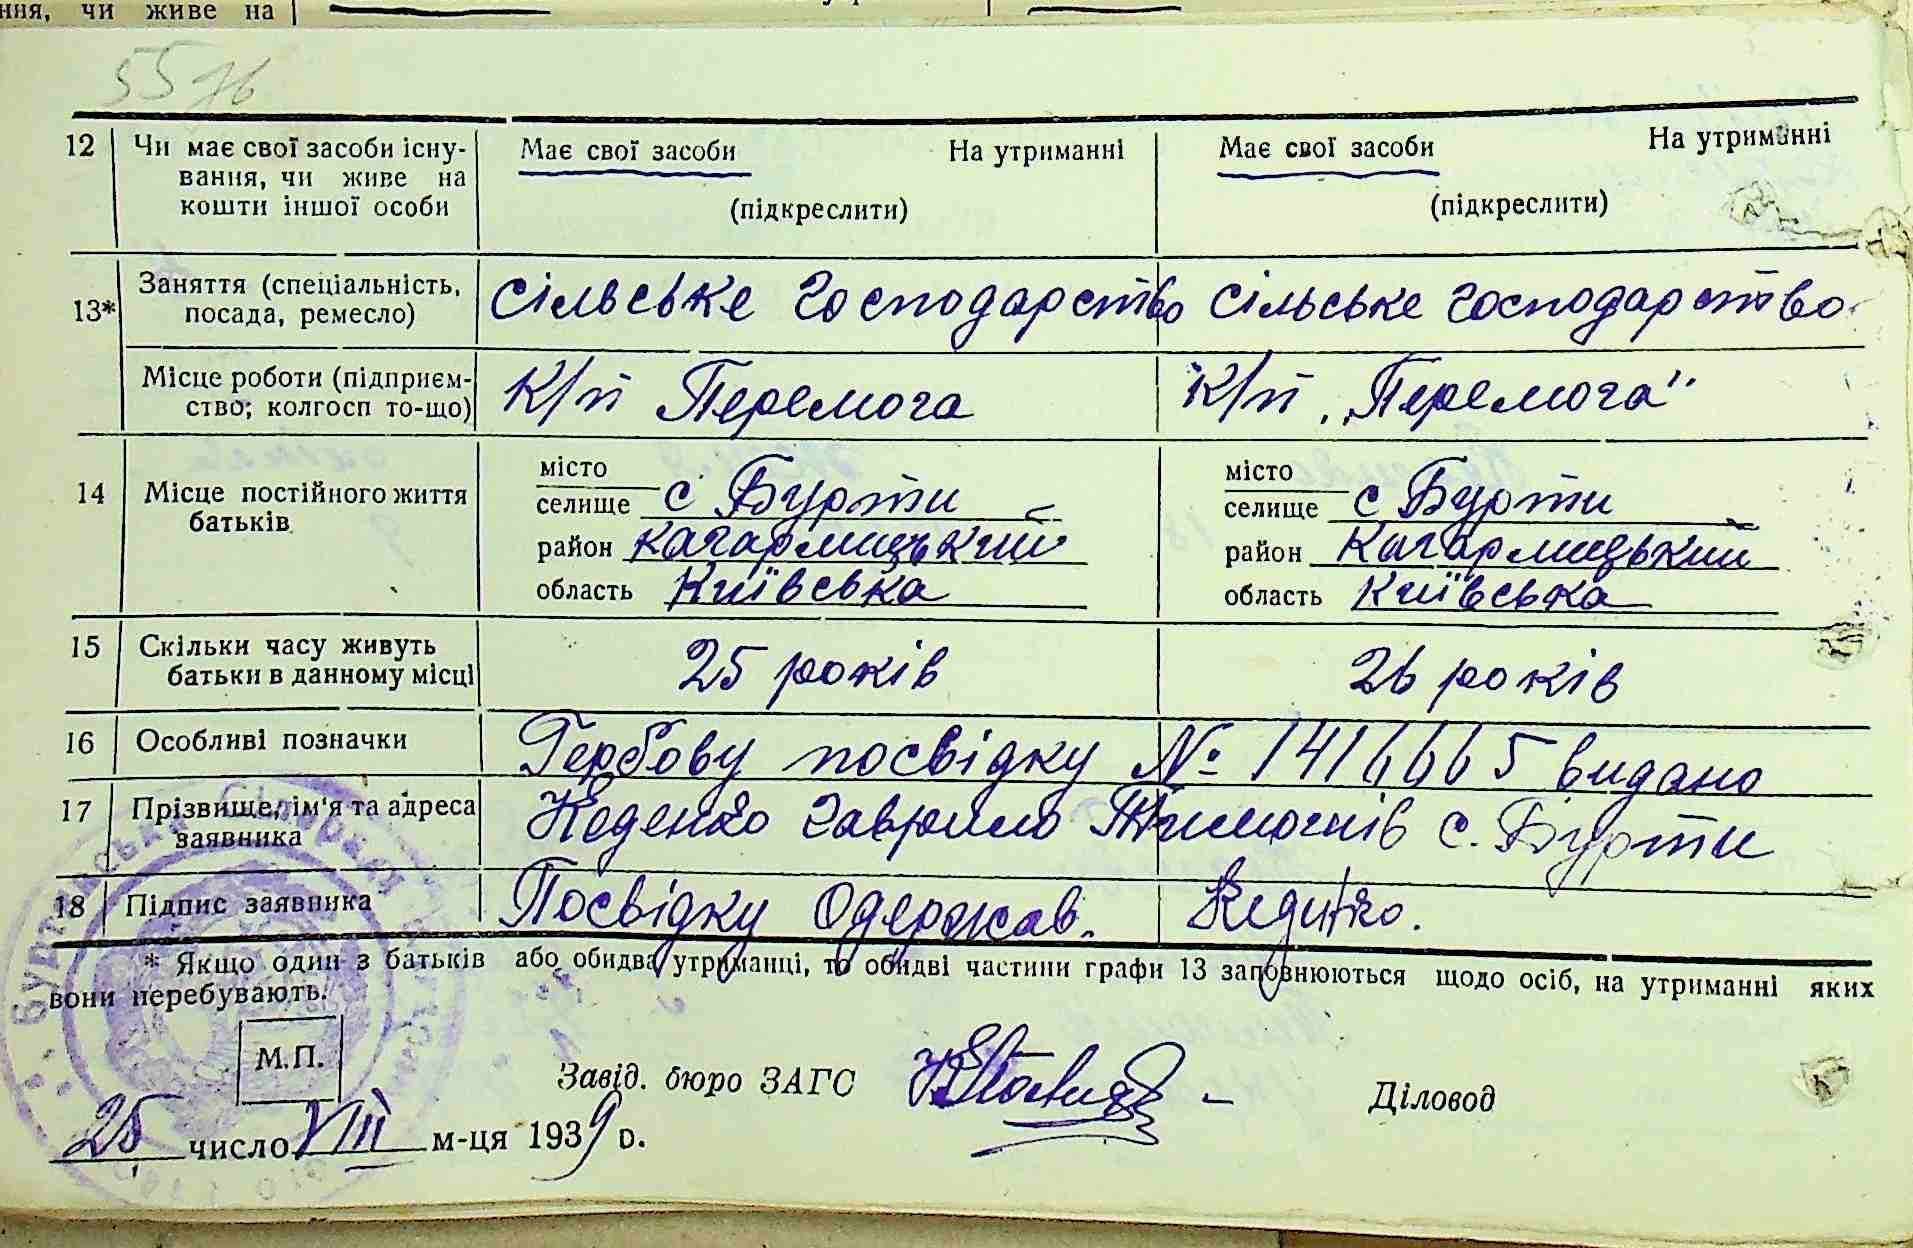 ння, чи живе на
55 зв
12 Чи має свої засоби існу- Має свої засоби На утриманні Має свої засоби На утриманні
вання, чи живе на
кошти іншої особи (підкреслити) (підкреслити)
13* Заняття (спеціальність, сільське господарство сільське господарство
посада, ремесло)
Місце роботи (підприєм- К/п Перемога К/п „Перемога"
ство; колгосп то-що)
14 Місце постійного життя місто місто
батьків селище с Бурти селище с Бурти
район Кагарлицький район Кагарлицький
область Київська область Київська
15 Скільки часу живуть 25 років 26 років
батьки в данному місці
16 Особливі позначки Гербову посвідку № 1416665 видано
17 Прізвище, ім'я та адреса Кеденко Гаврило Тимошів с. Бурти
заявника
18 Підпис заявника Посвідку Одержав. Кеденко.
* Якщо один з батьків або обидва утриманці, то обидві частини графи 13 заповнюються щодо осіб, на утриманні яких
вони перебувають.
М.П.
Завід. бюро ЗАГС Діловод
25 число VIII м-ця 1939 р.